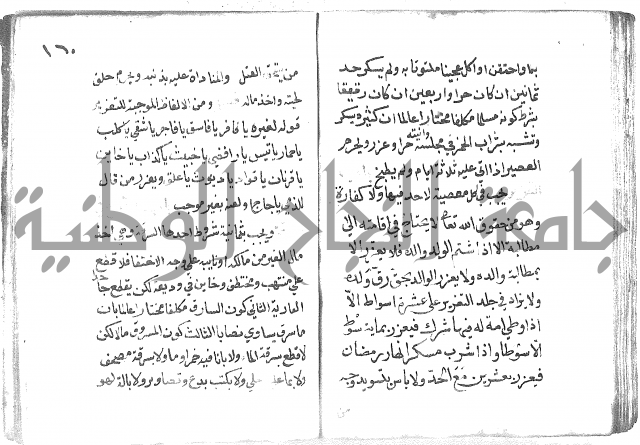 بما واحتقن او اكل عجينا ملتوتا به ولم يسكر حد
ثمانين ان كان حرا واربعين ان كان رقيقا
بشرط كونه مسلما مكلفا مختارا عالما ان كثيره يسكر
وتشبه بشراب الخمر في مجلسه وانيته حرم وعزر ويحرم
العصير اذا اتى عليه ثلاثة ايام ولم يطبخ
يجب في كل معصية لا حد فيها ولا كفارة
وهو من حقوق الله تعالى لا يحتاج في اقامته الى
مطالبة الا اذا شتم الولد والده فلا يعزر الا
بمطالبة والده ولا يعزر الوالد بحق ولده
ولا يزاد في جلد التعزير على عشرة اسواط الا
اذا وطي امة له فيها شرك فيعزر بماية سوط
الا سوطا واذا شرب مسكرا نهار رمضان
فيعزر بعشرين مع الحد ولا باس بتسويد وجه
من
١٦٠
من يستحق القتل والمناداة عليه بذنبه ويحرم حلق
لحيته واخذ ماله ومن الالفاظ الموجبة للتعزير
قوله لغيره يا كافر يا فاسق يا فاجر يا شقي يا كلب
يا حمار يا تيس يا رافضي يا خبيث يا كذاب يا خاين
يا قرنان يا قواد يا ديوث يا علق ويعزر من قال
لذمي يا حاج او لعنه بغير موجب
ويجب بثمانية شروط احدها السرقة وهي اخذ
مال الغير من مالكه او نايبه على وجه الاختفا فلا قطع
على منتهب ومختطف وخاين في وديعة لكن يقطع جاحد
العارية الثاني كون السارق مكلفا مختارا عالما بان
ما سرقه يساوي نصابا الثالث كون المسروق مالا لكن
لا قطع بسرقة الماء ولا بانا فيه خمر او ما ولا بسرقة مصحف
ولا بما عليه حلي ولا بكتب بدع وتصاوير ولا بالة لهو
جامعة النجاح الوطنية